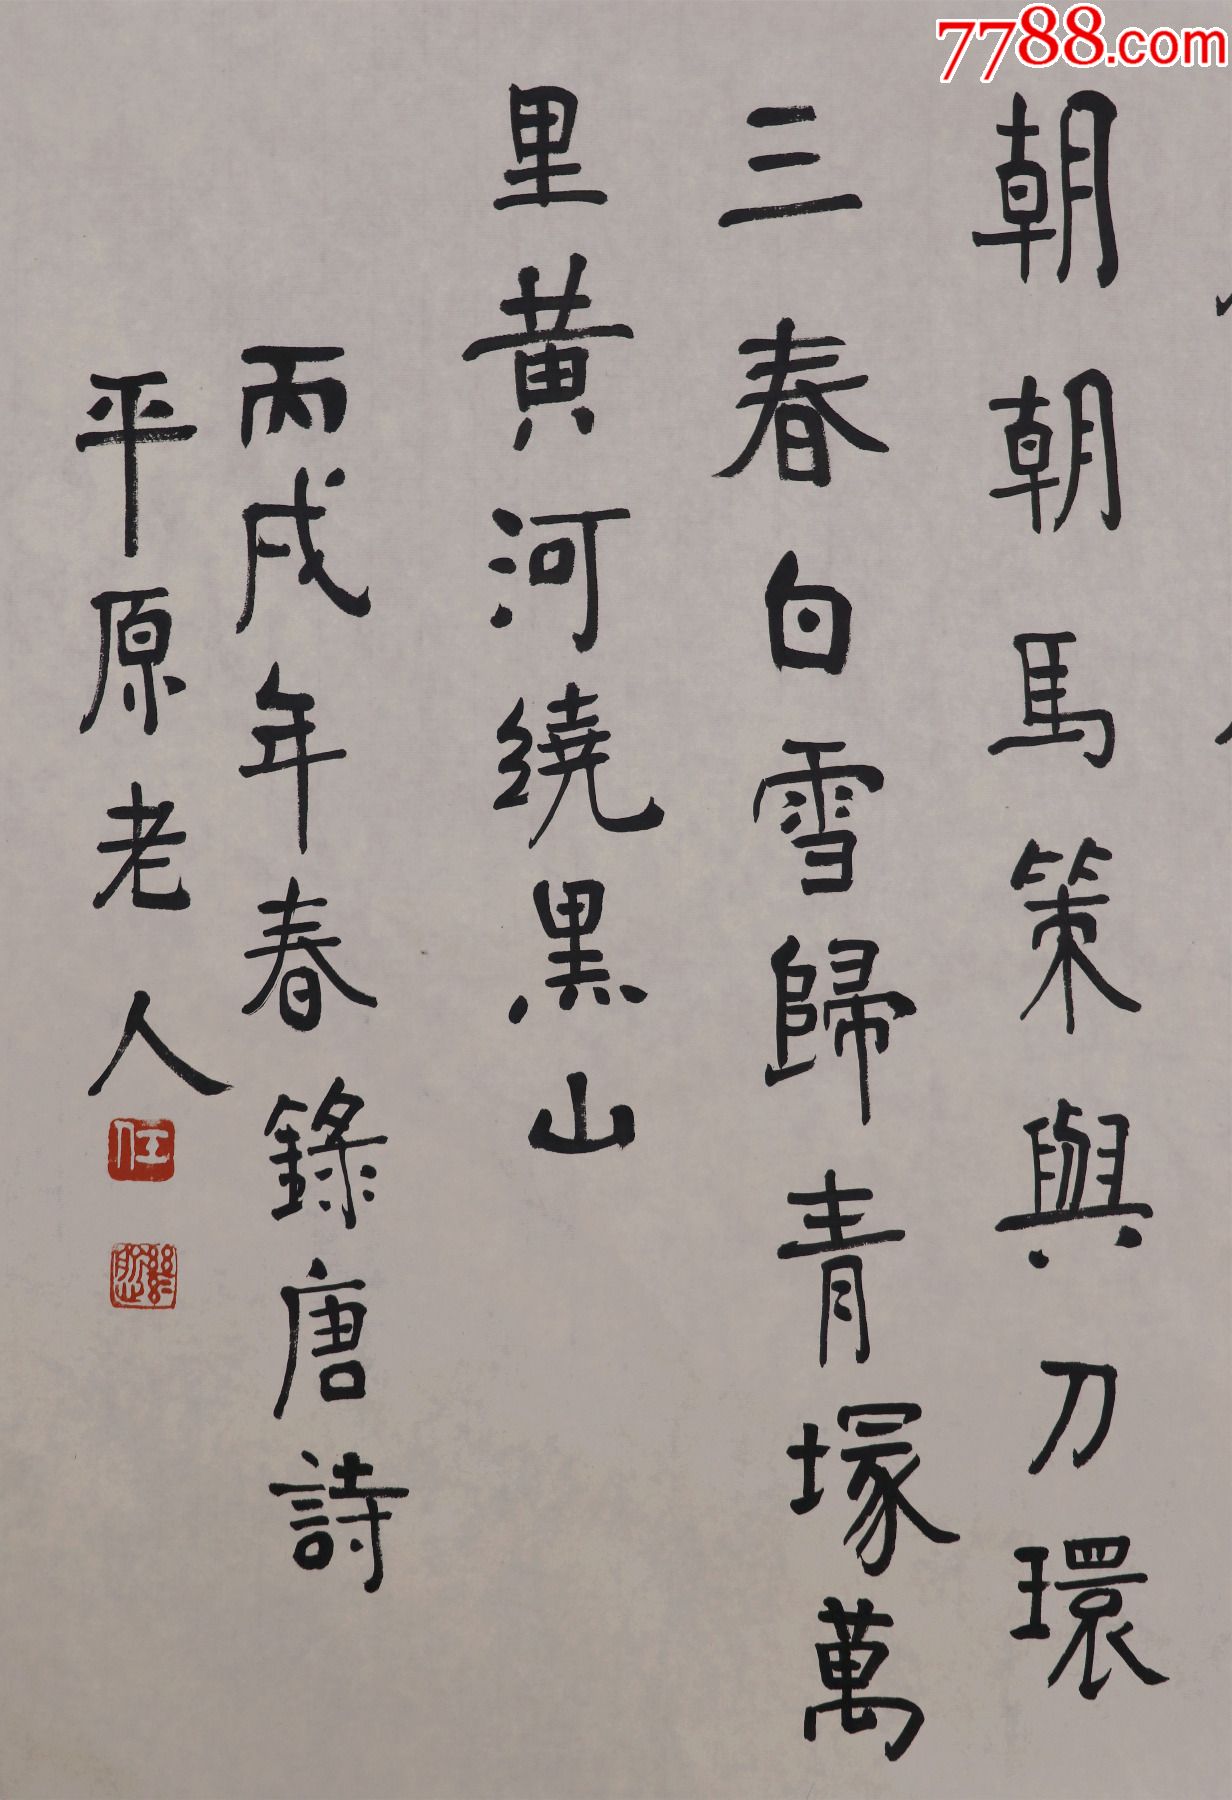 7788.com
朝朝馬策與刀環
三春白雪歸青塚萬
里黃河繞黑山
丙戌年春錄唐詩
平原老人
任
繼愈